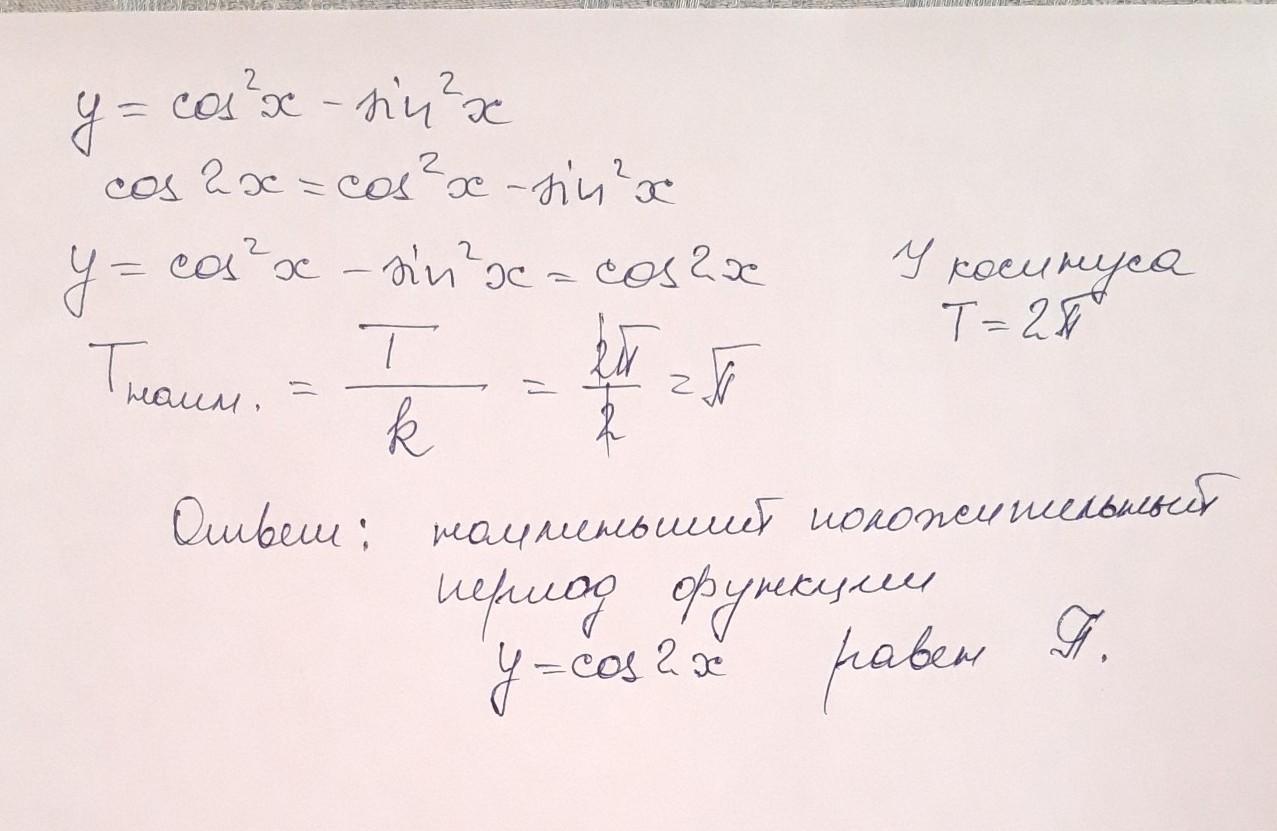 y = cos²x - sin²x
cos 2x = cos²x - sin²x
y = cos²x - sin²x = cos 2x
У косинуса
T = 2π
Tнаим. = T/k = 2π/2 = π
Ответ: наименьший положительный
период функции
y = cos 2x равен π.